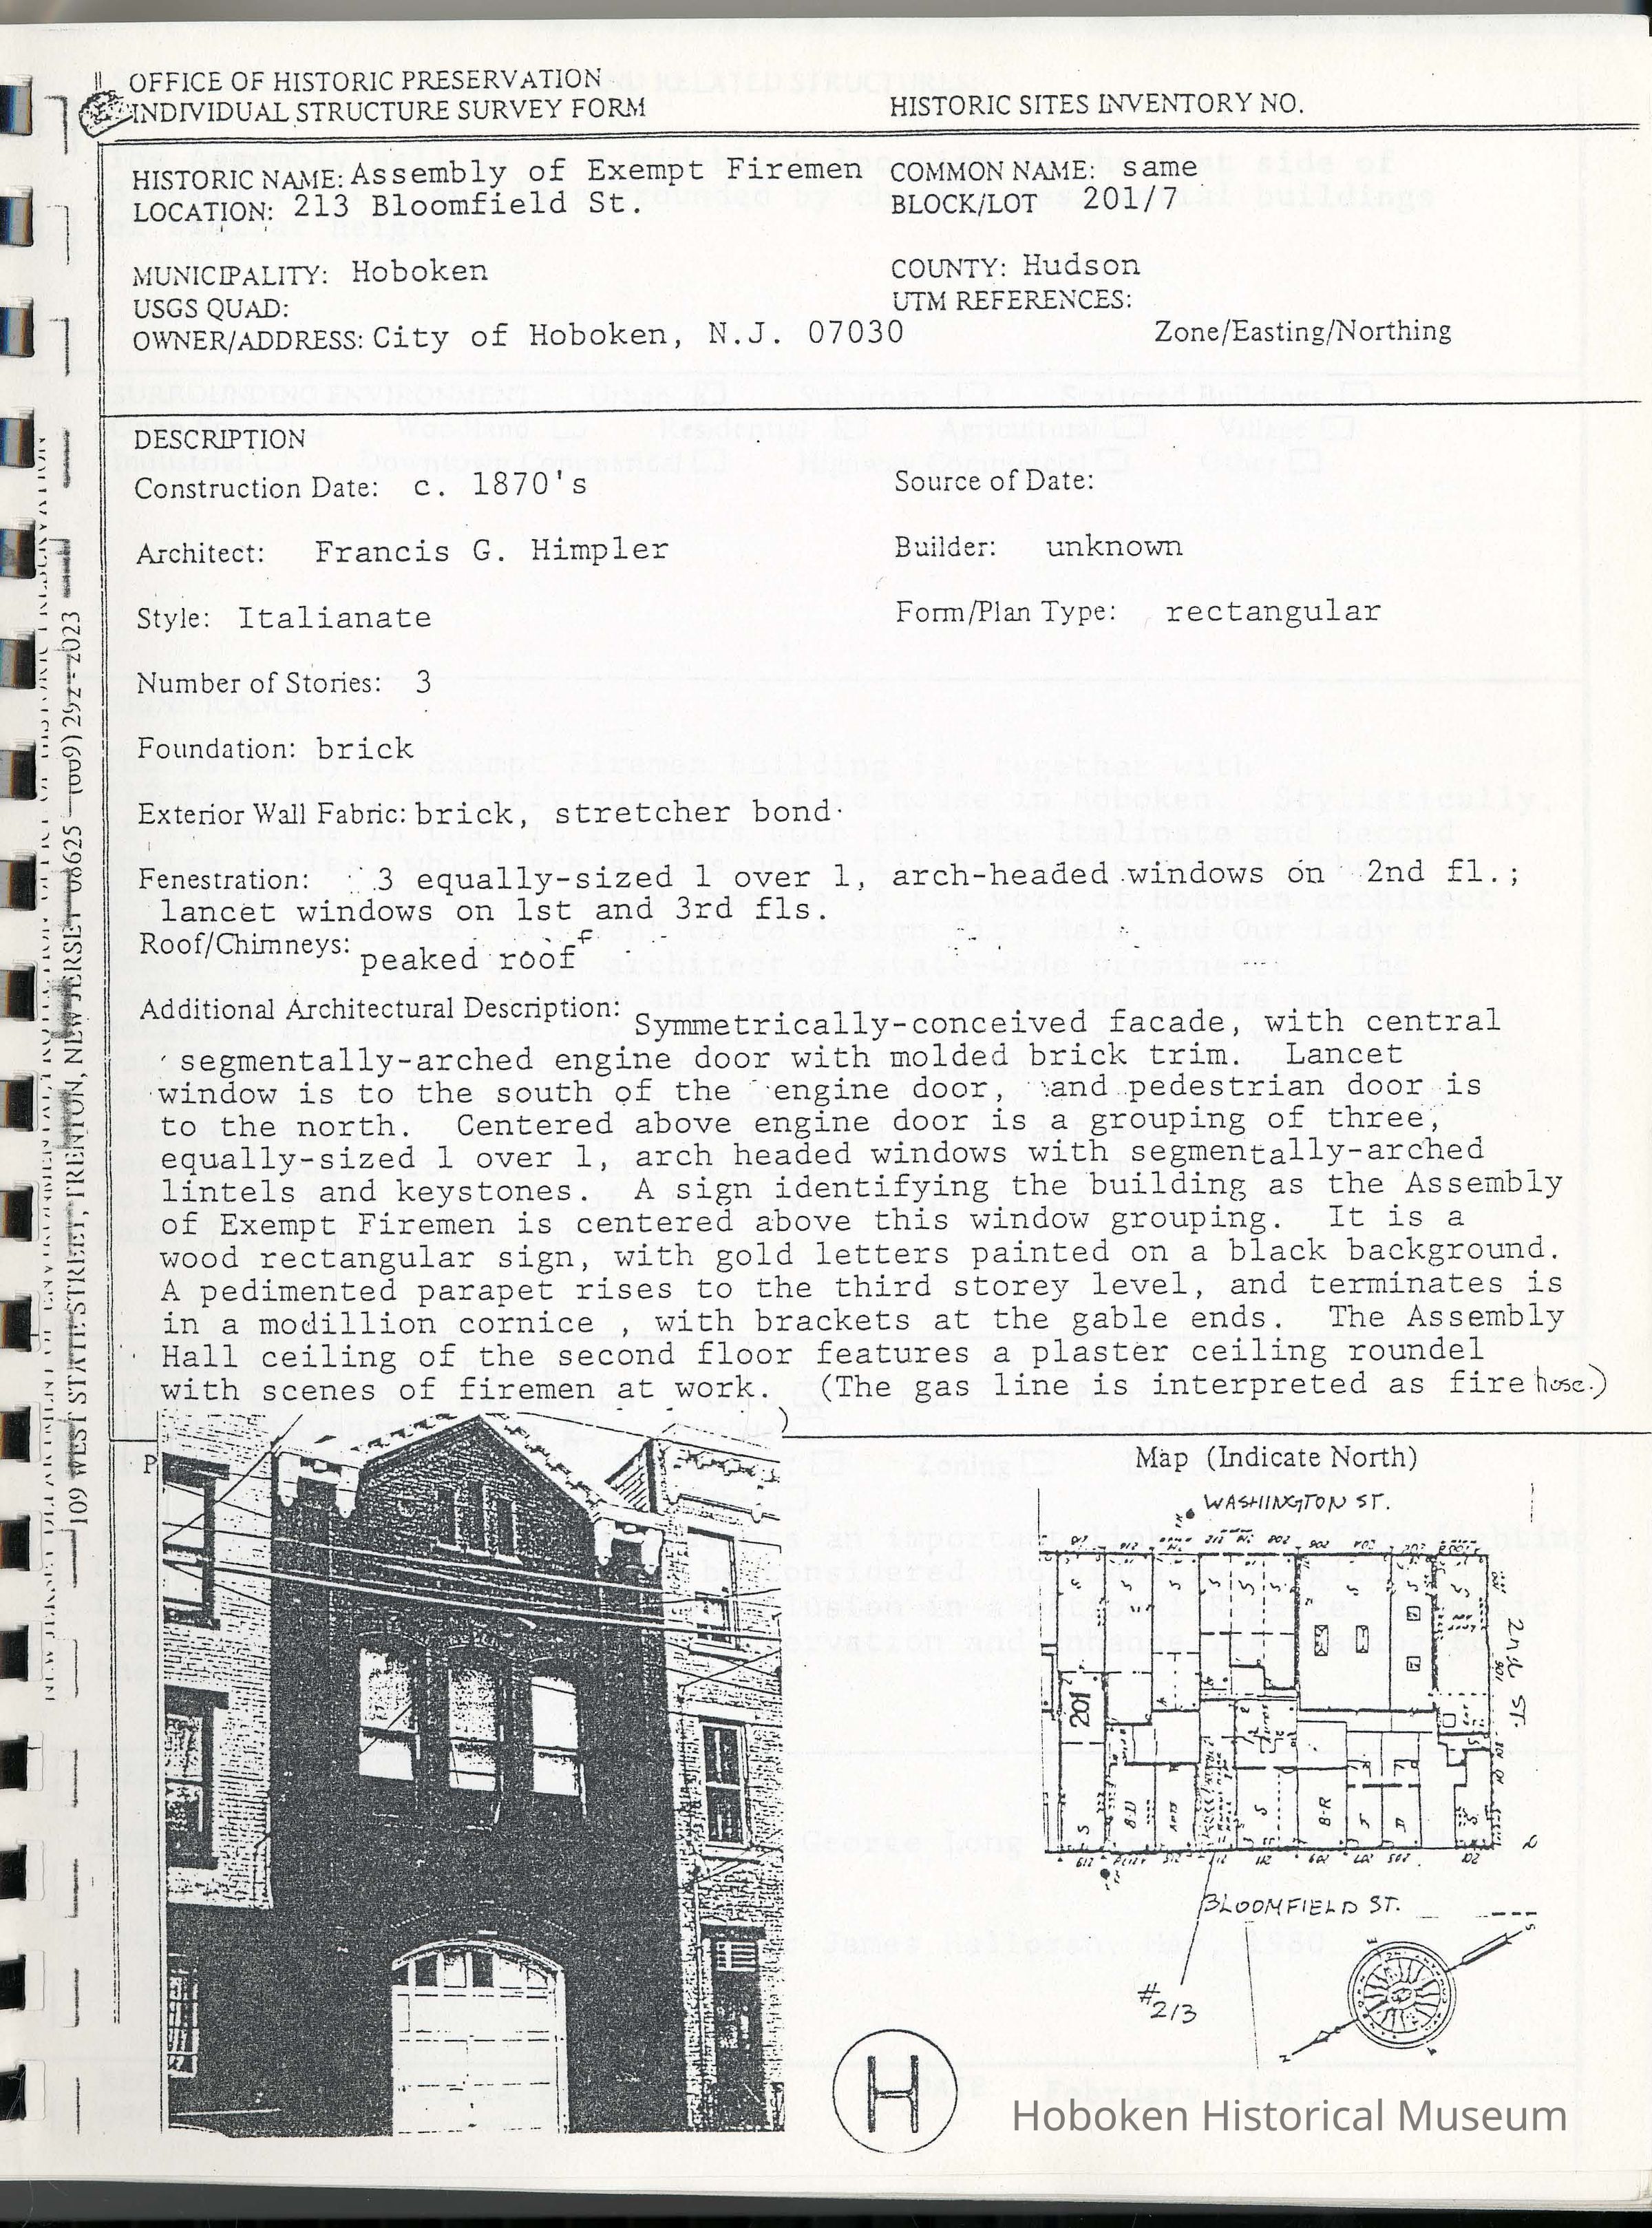 OFFICE OF HISTORIC PRESERVATION
INDIVIDUAL STRUCTURE SURVEY FORM
HISTORIC SITES INVENTORY NO.
HISTORIC NAME: Assembly of Exempt Firemen
COMMON NAME: same
LOCATION: 213 Bloomfield St.
BLOCK/LOT 201/7
MUNICIPALITY: Hoboken
COUNTY: Hudson
USGS QUAD:
UTM REFERENCES:
OWNER/ADDRESS: City of Hoboken, N.J. 07030
Zone/Easting/Northing
DESCRIPTION
Construction Date: c. 1870's
Source of Date:
Architect: Francis G. Himpler
Builder: unknown
Style: Italianate
Form/Plan Type: rectangular
Number of Stories: 3
Foundation: brick
Exterior Wall Fabric: brick, stretcher bond
Fenestration: 3 equally-sized 1 over 1, arch-headed windows on 2nd fl.;
lancet windows on 1st and 3rd fls.
Roof/Chimneys: peaked roof
Additional Architectural Description: Symmetrically-conceived facade, with central
segmentally-arched engine door with molded brick trim. Lancet
window is to the south of the engine door, and pedestrian door is
to the north. Centered above engine door is a grouping of three,
equally-sized 1 over 1, arch headed windows with segmentally-arched
lintels and keystones. A sign identifying the building as the Assembly
of Exempt Firemen is centered above this window grouping. It is a
wood rectangular sign, with gold letters painted on a black background.
A pedimented parapet rises to the third storey level, and terminates is
in a modillion cornice , with brackets at the gable ends. The Assembly
Hall ceiling of the second floor features a plaster ceiling roundel
with scenes of firemen at work. (The gas line is interpreted as fire hose.)
Map (Indicate North)
WASHINGTON ST.
2nd ST.
201
B-R
BLOOMFIELD ST.
#213
H
109 WEST STATE STREET, TRENTON, NEW JERSEY 08625 (609) 292-2023
Hoboken Historical Museum